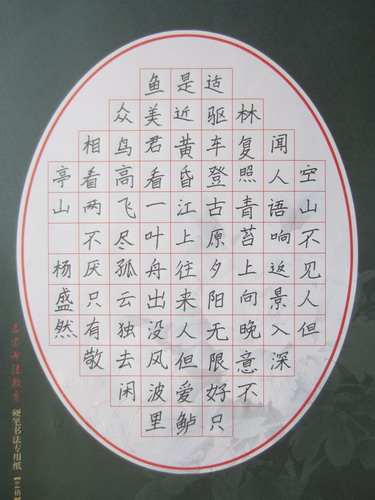 空山不见人但
闻人语响返景入深
林复照青苔上向晚意不
适驱车登古原夕阳无限好只
是近黄昏江上往来人但爱鲈
鱼美君看一叶舟出没风波里
众鸟高飞尽孤云独去闲
相看两不厌只有敬
亭山杨盛然
硬笔书法专用纸